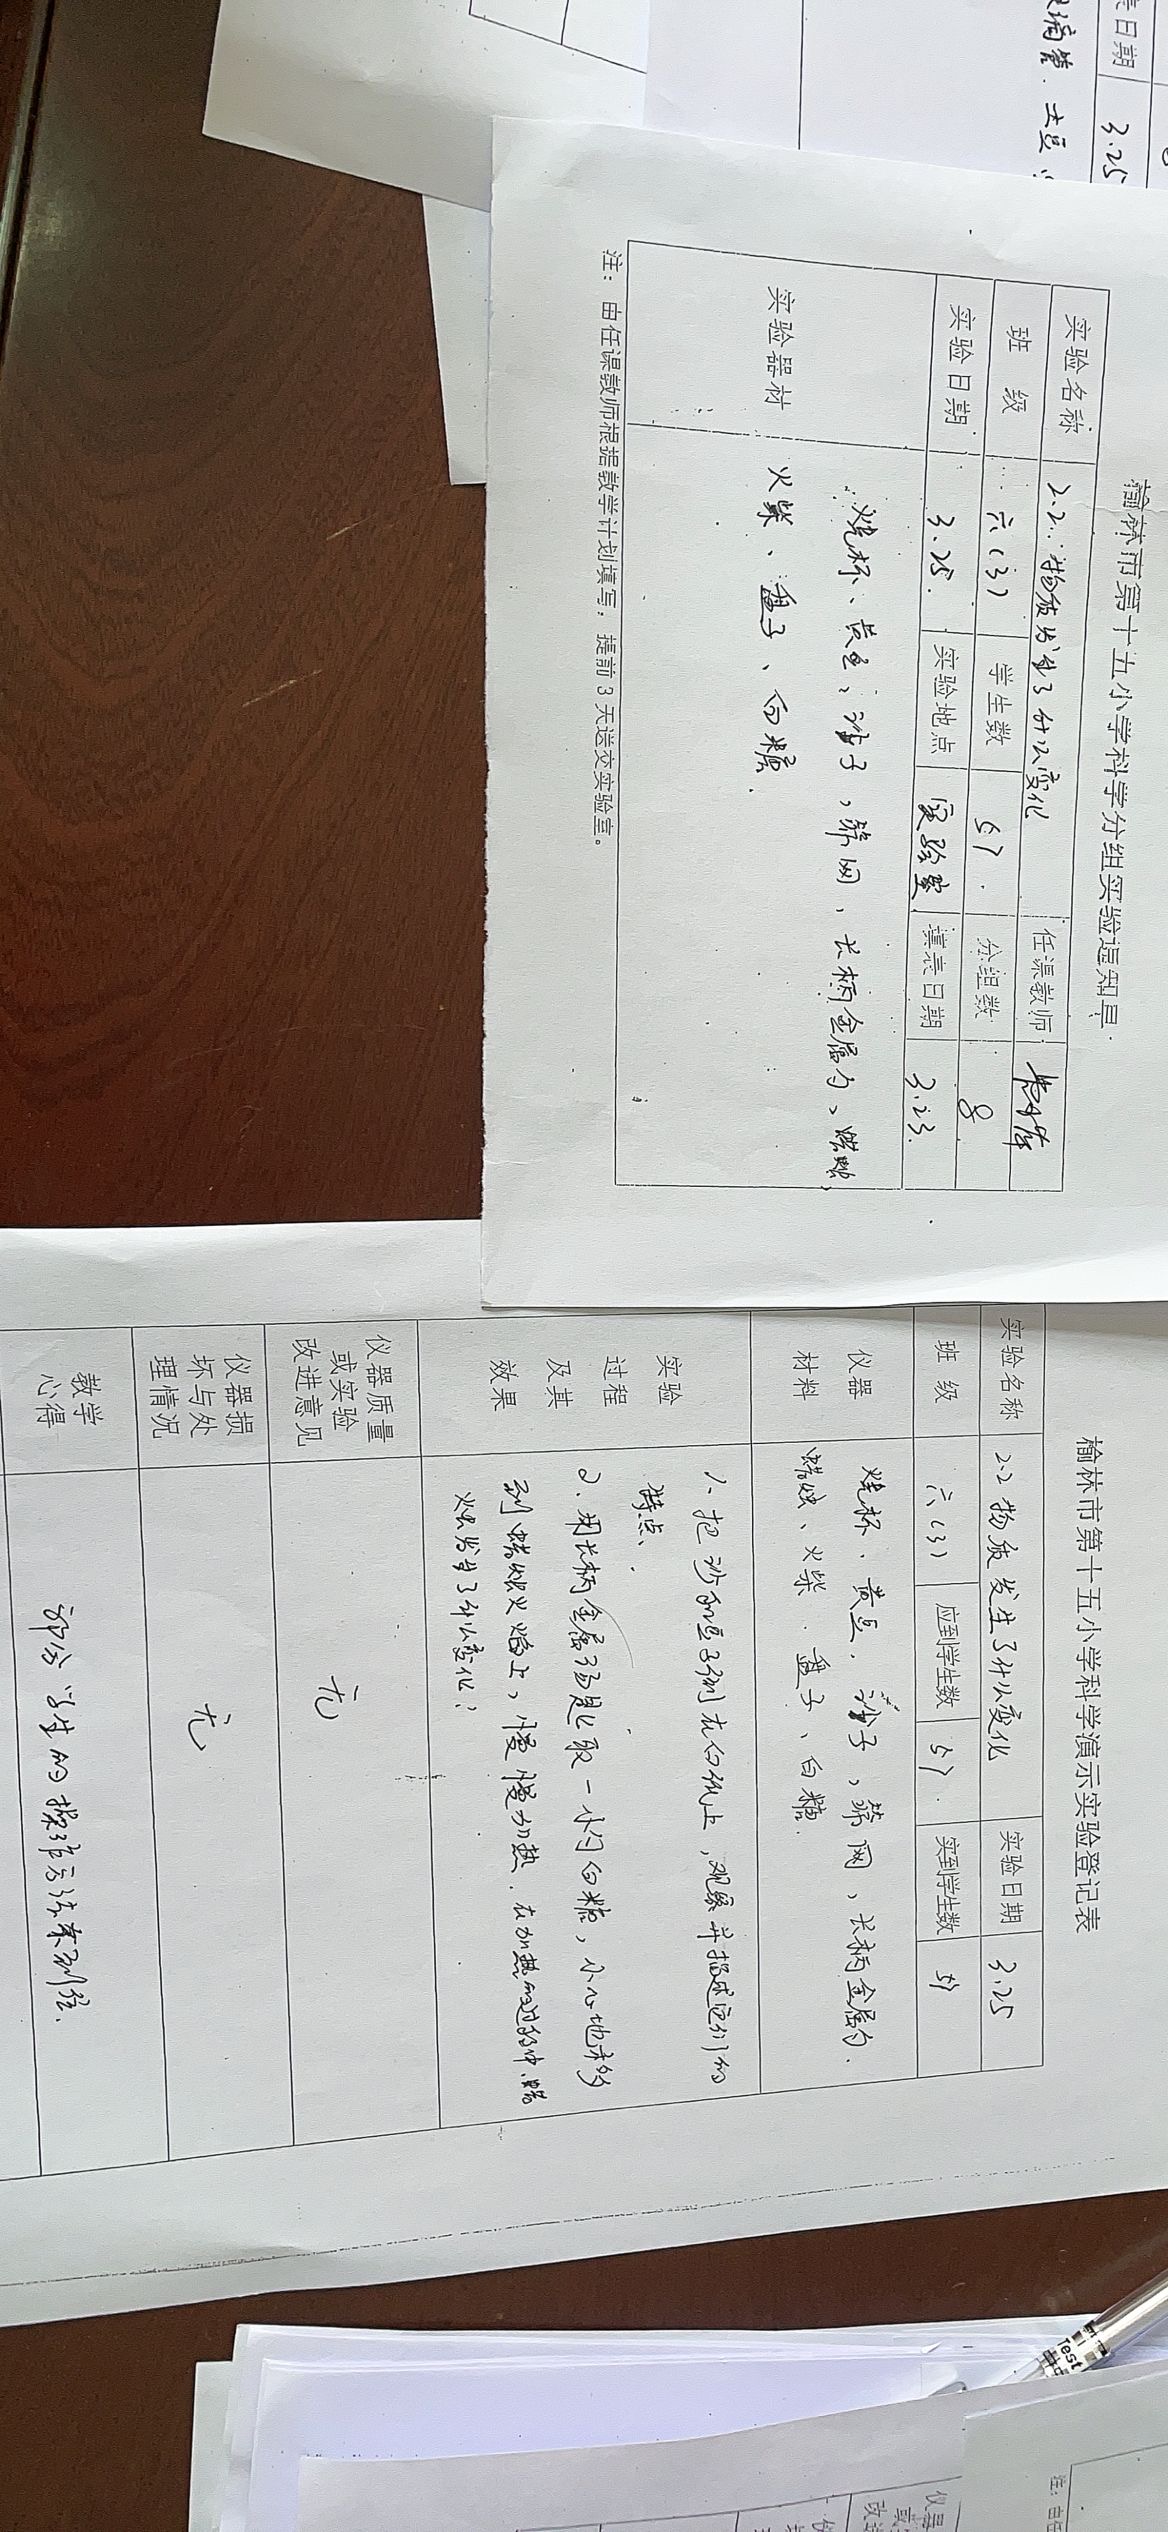 表日期
3.25
玻璃管、土豆
榆林市第十五小学科学分组实验通知单
实验名称 2.2 物质发生了什么变化 任课教师
班 级 六(3) 学生数 57. 分组数 8
实验日期 3.25. 实验地点 实验室 填表日期 3.23.
实验器材
烧杯、黄豆、沙子,筛网、长柄金属勺、蜡烛,
火柴、盘子、白糖.
注:由任课教师根据教学计划填写,提前3天送交实验室。
榆林市第十五小学科学演示实验登记表
实验名称 2.2 物质发生了什么变化 实验日期 3.25
班 级 六(3) 应到学生数 57. 实到学生数 57
仪器
材料
烧杯、黄豆、沙子,筛网、长柄金属勺.
蜡烛、火柴.盘子、白糖.
实验
过程
及其
效果
1、把沙和豆子倒在白纸上,观察并描述它们的
特点.
2、用长柄金属汤匙取一小勺白糖,小心地移
到蜡烛火焰上,慢慢加热.在加热的过程中,蜡
烛发生了什么变化?
仪器质量
或实验
改进意见
无
仪器损
坏与处
理情况
无
教学
心得
部分学生的操作方法不到位.
Test
注:由任